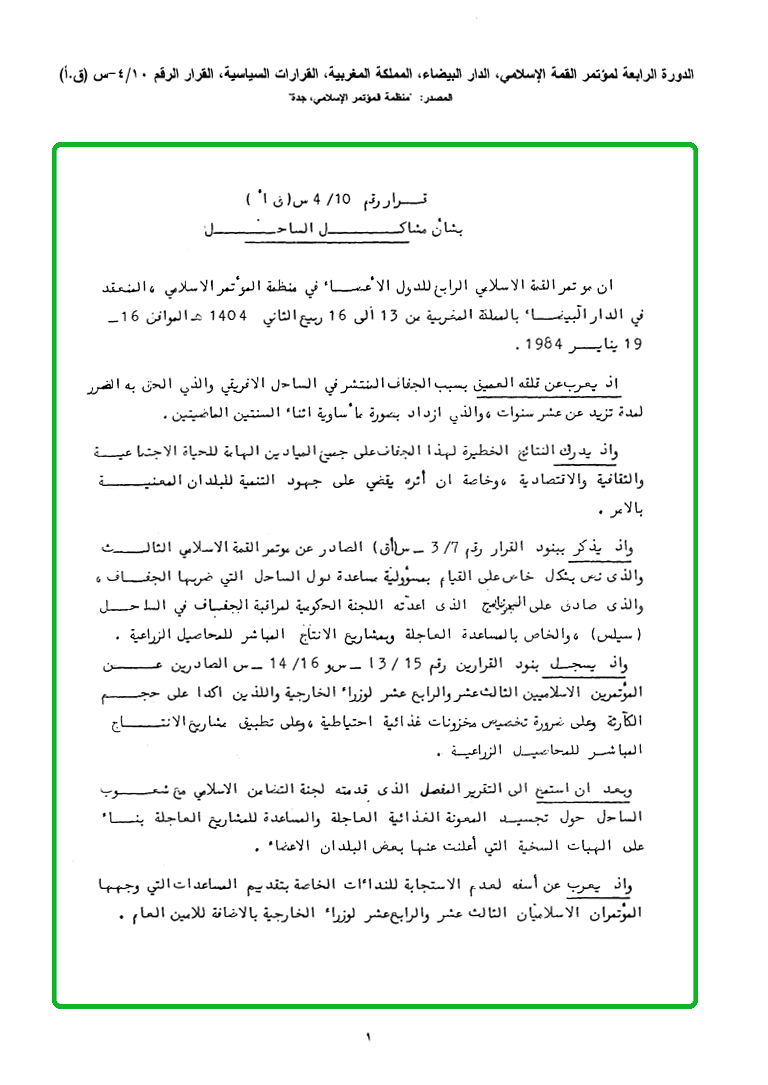 الدورة الرابعة لمؤتمر القمة الإسلامي، الدار البيضاء، المملكة المغربية، القرارات السياسية، القرار الرقم ٤/١٠-س (ق.أ)
المصدر: "منظمة المؤتمر الإسلامي، جدة"
قـــرار رقم 4/10 س (ق أ)
بشأن مشاكـــل الساحــل
ان موتمر القمة الاسلامي الرابع للدول الأعضـــاء في منظمة المؤتمر الاسلامي ، المنعقد
في الدار البيضـــاء بالمملكة المغربية من 13 الى 16 ربيع الثاني 1404 هـ الموافق 16 ــ
19 ينايـــر 1984 .
اذ يعرب عن قلقه العميق بسبب الجفاف المنتشر في الساحل الافريقي والذي الحق به الضرر
لمدة تزيد عن عشر سنوات ، والذي ازداد بصورة مأساوية اثناء السنتين الماضيتين .
واذ يدرك النتائج الخطيرة لهذا الجفاف على جميع الميادين الهامة للحياة الاجتماعيـــة
والثقافية والاقتصادية ، وخاصة ان أثره يقضي على جهود التنمية للبلدان المعنيـــة
بالامر .
واذ يذكر ببنود القرار رقم 3/7 ــ س(أق) الصادر عن موتمر القمة الاسلامي الثالـــث
والذى نص بشكل خاص على القيام بمسؤولية مساعدة دول الساحل التي ضربها الجفـــاف ،
والذى صادق على البرنامج الذى اعدته اللجنة الحكومية لمراقبة الجفـاف في الساحـــل
(سيلس) ، والخاص بالمساعدة العاجلة وبمشاريع الانتاج المباشر للمحاصيل الزراعية .
واذ يسجـــل بنود القرارين رقم 13/15 ــ س و 14/16 ــ س الصادرين عـــن
المؤتمرين الاسلاميين الثالث عشر والرابع عشر لوزراء الخارجية واللذين اكدا على حجـــم
الكارثة وعلى ضرورة تخصيص مخزونات غذائية احتياطية ، وعلى تطبيق مشاريع الانتـــاج
المباشـر للمحاصيـل الزراعيـة .
وبعـد ان استمع الى التقرير المفصل الذى قدمته لجنة التضامن الاسلامي مع شعـــوب
الساحل حول تجسيـد المعونة الغذائية العاجلة والمساعدة للمشاريع العاجلة بنـــاء
على الهبات السخية التي أعلنت عنها بعض البلدان الاعضاء .
واذ يعرب عن أسفه لعدم الاستجابة للنداءات الخاصة بتقديم المساعدات التي وجهها
المؤتمران الاسلاميان الثالث عشر والرابع عشر لوزراء الخارجية بالاضافة للامين العام .
١